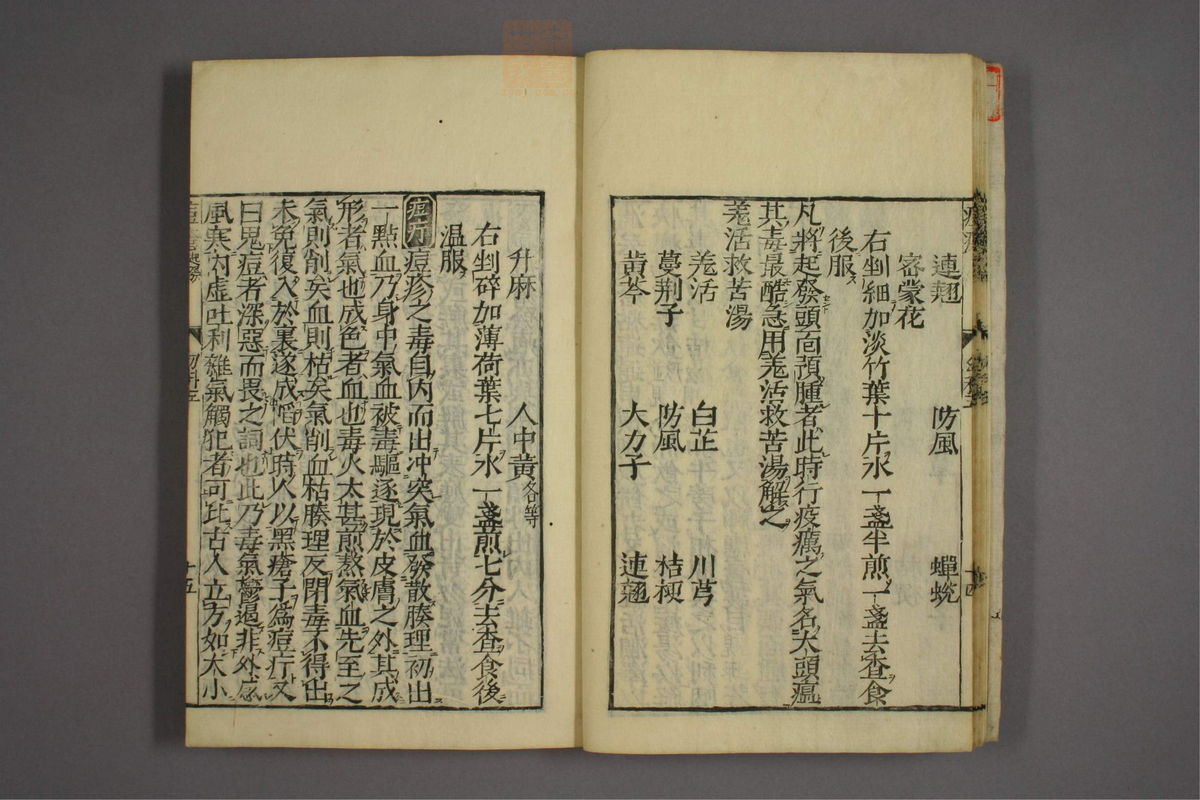 連翹　防風　蟬蛻
密蒙花
右剉細加淡竹葉十片水一盞半煎一盞去查食
後服
凡將起發頭面預腫者此時行疫癘之氣名大頭瘟
其毒最酷急用羌活救苦湯解之
羌活救苦湯
羌活　白芷　川芎
蔓荆子　防風　桔梗
黄芩　大力子　連翹
升麻　人中黄各等
右剉碎加薄荷葉七片水一盞煎七分去查食後
温服
痘疔痘疹之毒自内而出冲突氣血發散腠理初出
一點血乃身中氣血被毒驅逐現於皮膚之外其成
形者氣也成色者血也毒火太甚煎熬氣血先至之
氣則削矣血則枯矣氣削血枯腠理反閉毒不得出
未免復入於裏遂成陷伏時人以黑瘡子爲痘疔又
曰鬼痘者深惡而畏之詞也此乃毒氣鬱遏非外感
風寒内虚吐利雜氣觸犯者可比古人立方如大小
十五